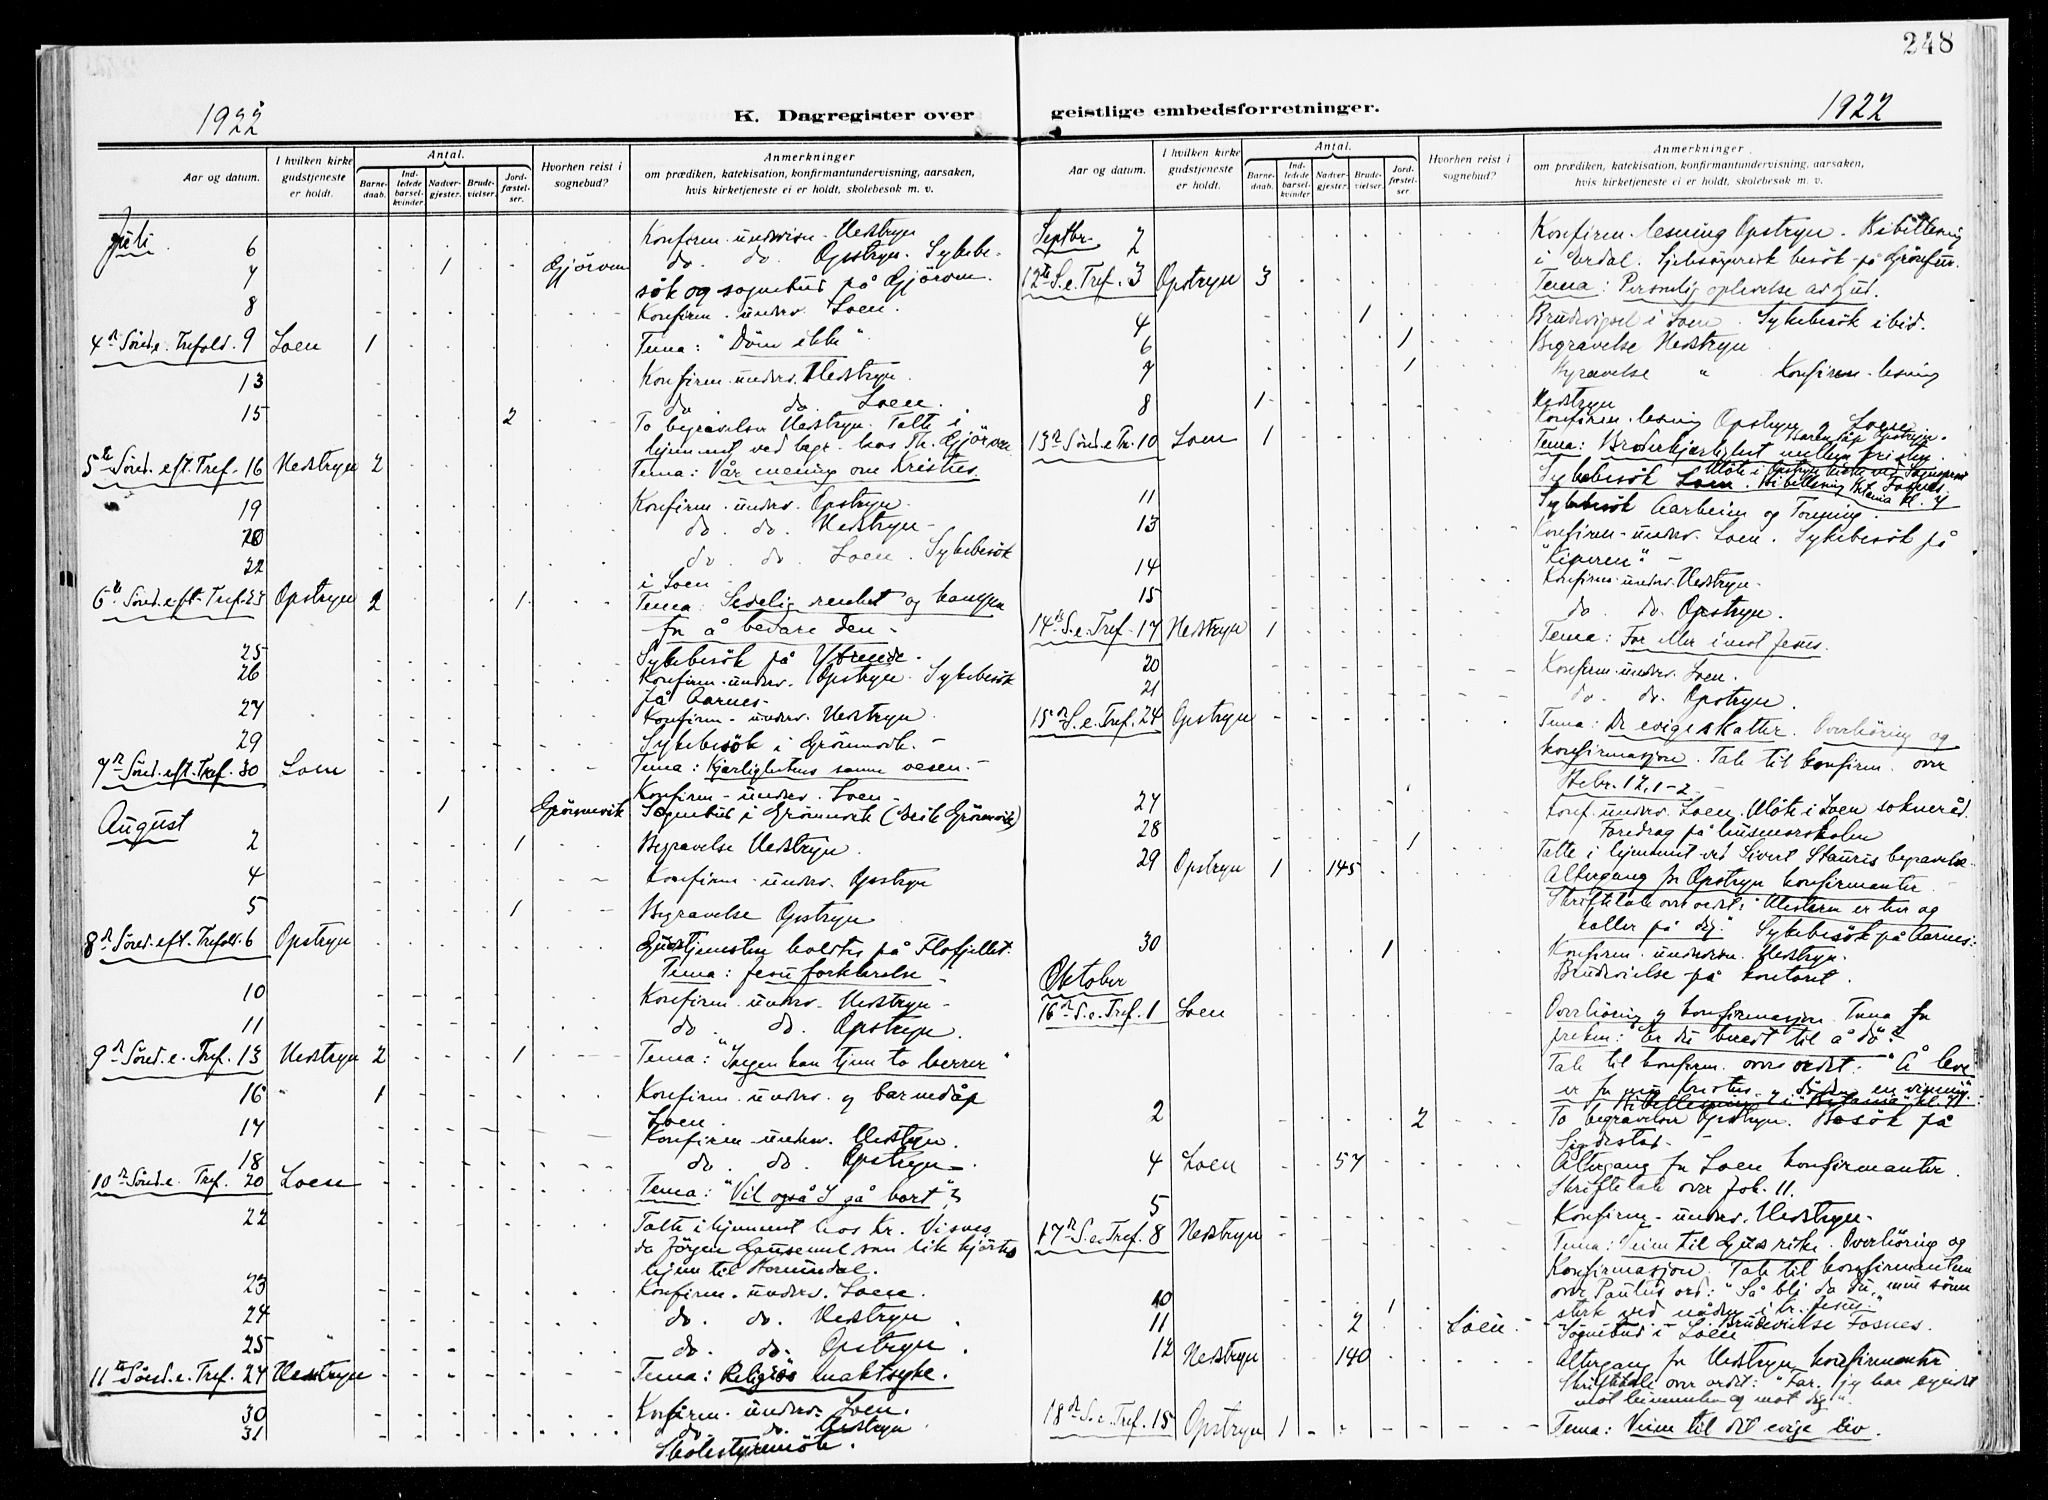 248
1922
K. Dagregister over
geistlige embedsforretninger.
1922
Aar og datum.
I hvilken kirke gudstjeneste er holdt.
Antal.
Barnedaab.
Indledede barselkvinder.
Nadvergjester.
Brudevielser.
Jordfæstelser.
Hvorhen reist i sognebud?
Anmerkninger
om prædiken, katekisation, konfirmantundervisning, aarsaken,
hvis kirketjeneste ei er holdt, skolebesøk m. v.
Juli
6 Konfirm. undervisn. Nedstryn
7 1 Gjörven do. do. Opstryn. Sykebe-
sök og sognebud på Gjörven.
8 Konfirm. underv. Loen.
4de Sönd. e. Trefold. 9 Loen 1 Tema: "Döm ikke"
13 Konfirm. underv. Nedstryn.
do do. Loen.
15 2 To begravelser Nedstryn. Talte i
hjemmet ved begr. hos Th. Gjörven
5te Sönd. eft. Tref. 16 Nedstryn 2 Tema: Vår mening om Kristus.
19 Konfirm. underv. Opstryn.
20 do. do. Nedstryn
22 do do Loen. Sykebesök
i Loen
6te Sönd. eft. Tref. 23 Opstryn 2 1 Tema: Sedelig renhet og kampen
for å bevare den
25 Sykebesök på Ytreeide.
26 Konfirm. underv. Opstryn. Sykebesök
på Aarnes.
27 Konfirm. underv. Nedstryn
29 Sykebesök i Grönnvik.
7de Sönd. eft. Tref. 30 Loen Tema: Kjærlighetens sanne vesen.
Konfirm. underv. Loen
August
1 Grönnvik Sognebud i Grönnvik (Beate Grönnvik)
2 1 Begravelse Nedstryn.
4 Konfirm. underv. Opstryn
5 1 Begravelse Opstryn
8de Sönd. eft. Trefold. 6 Opstryn Gudstjenesten holdtes på Flofjellet.
Tema: Jesu forklarelse
10 Konfirm. underv. Nedstryn
11 do. do. Opstryn.
9de Sönd. e. Tref. 13 Nedstryn 2 1 Tema: "Ingen kan tjene to herrer"
16 1 Konfirm. underv. og barnedåp
Loen
17 Konfirm. underv. Nedstryn.
18 do. do. Opstryn
10de Sönd. e. Tref. 20 Loen Tema: "Vil også I gå bort"?
22 Talte i hjemmet hos Kr. Visnes,
da Jörgen som lik kjörtes
hjem til Hornindal.
23 Konfirm. underv. Loen.
24 do. do. Nedstryn
25 do. do. Opstryn.
11te Sönd. e. Tref. 27 Nedstryn Tema: Religiös maktsyke.
30 Konfirm. underv. Loen.
31 do. do. Nedstryn
Skolestyremöte.
Aar og datum.
I hvilken kirke gudstjeneste er holdt.
Antal.
Barnedaab.
Indledede barselkvinder.
Nadvergjester.
Brudevielser.
Jordfæstelser.
Hvorhen reist i sognebud?
Anmerkninger
om prædiken, katekisation, konfirmantundervisning, aarsaken,
hvis kirketjeneste ei er holdt, skolebesøk m. v.
Septbr. 2 Konfirm. lesning Opstryn. Bibellesning
i Erdal. Sjelesörgerisk besök på
12te S. e. Tref. 3 Opstryn 3 Tema: Personlig oplevelse av Gud.
4 1 Brudevigsel i Loen. Sykebesök ibid.
6 1 Begravelse Nedstryn
7 1 Begravelse " Konfirm. lesning
Nedstryn
8 1 Konfirm. lesning Opstryn og Loen
Barnedåp Opstryn.
13de Sönd. e. Tr. 10 Loen 1 Tema: Broderkjærlighet mellem kristne.
Sykebesök Loen.
11 Sykebesök Aarheim og Tonning.
13 Konfirm. underv. Loen. Sykebesök på
14 Konfirm. underv. Nedstryn.
15 do. do. Opstryn.
14de S. e. Tref. 17 Nedstryn 1 Tema: For eller imot Jesus.
20 Konfirm. underv. Loen.
21 do. do. Opstryn.
15de S. e. Tref. 24 Opstryn Tema: De evige skatter. Overhöring og
konfirmasjon. Tale til konfirm. over
Hebr. 12,1-2
27 Konf. underv. Loen. Möte i Loen sokneråd.
28 1 Foredrag på husmorskolen
Talte i hjemmet ved Sivert Stauris begravelse.
29 Opstryn 1 145 Altergang for Opstryn konfirmanter
Skriftetale over ordet: "Mesteren er her og
kaller på dig." Sykebesök på Aarnes.
30 1 Konfirm. undervisn. Nedstryn.
Brudevielse på kontoret.
Oktober
16de S. e. Tref. 1 Loen Overhöring og konfirmasjon. Tema for
preken: Er du beredt til å dö?
Tale til konfirm. over ordet: "Å leve
er for mig Kristus og döden en vinning".
Bibellesning i "Betania" kl.
2 2 To begravelser Opstryn. Besök på
4 Loen 57 Altergang for Loen konfirmanter.
Skriftetale over Joh. 11.
5 Konfirm. underv. Nedstryn
17de S. e. Tref. 8 Nedstryn Tema: Veien til Guds rike. Overhöring og
Konfirmasjon. Tale til konfirmantene
over Paulus ord: "Så bli da du, min sönn
sterk ved nåden i Kr. Jesus."
10 1 Brudevielse Fosnes.
11 2 Loen Sognebud i Loen
12 Nedstryn 140 Altergang for Nedstryn konfirmanter
Skriftetale over ordet: "Far, jeg har syndet
mot himmelen og mot dig".
18de S. e. Tref. 15 Opstryn 1 Tema: Veien til det evige liv.